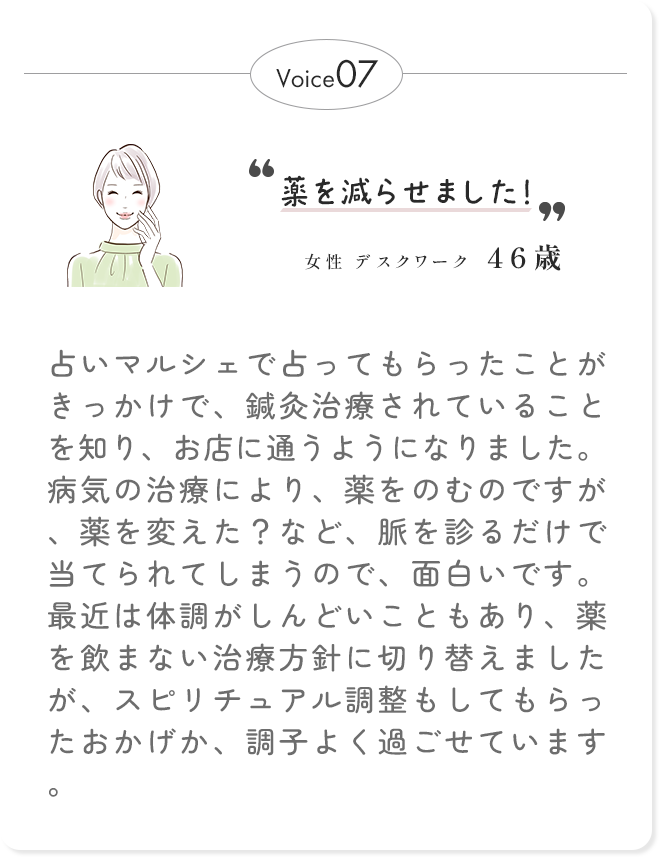 Voice07
“薬を減らせました!”
女性 デスクワーク 46歳
占いマルシェで占ってもらったことが
きっかけで、鍼灸治療されていること
を知り、お店に通うようになりました。
病気の治療により、薬をのむのですが
、薬を変えた？など、脈を診るだけで
当てられてしまうので、面白いです。
最近は体調がしんどいこともあり、薬
を飲まない治療方針に切り替えました
が、スピリチュアル調整もしてもらっ
たおかげか、調子よく過ごせています
。